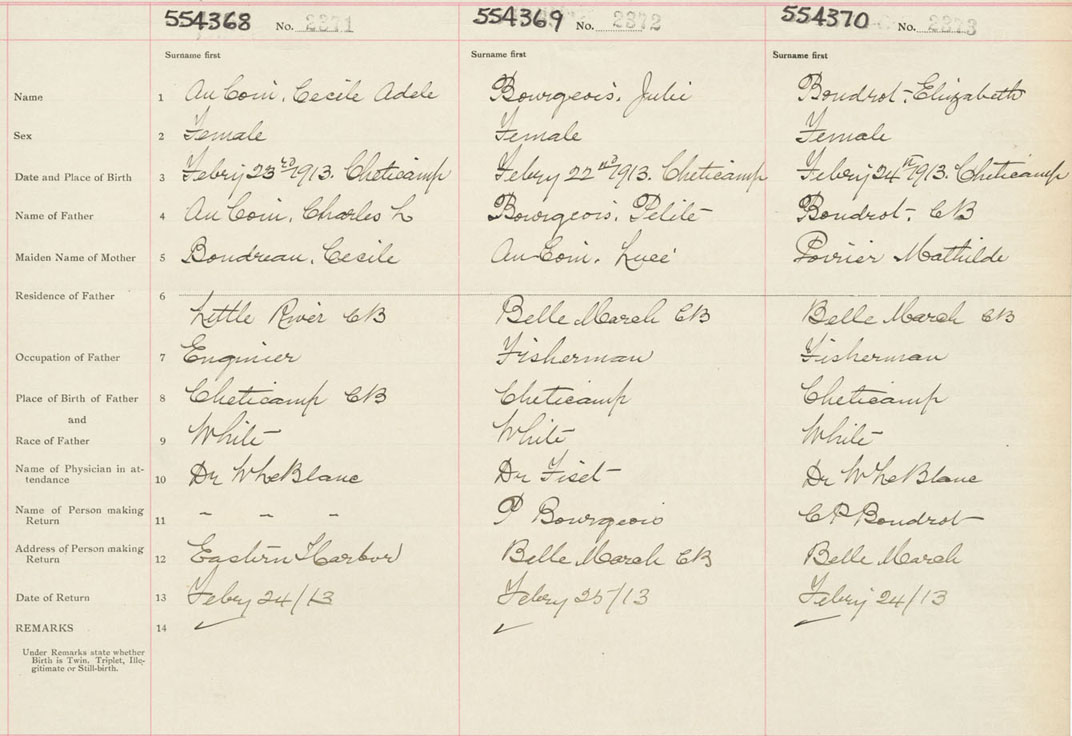 554368 No. 2371 554369 No. 2372 554370 No. 2373
Surname first Surname first Surname first
Name 1 AuCoin, Cecile Adele Bourgeois, Julie Boudrot, Elizabeth
Sex 2 Female Female Female
Date and Place of Birth 3 Febry 23rd 1913. Cheticamp Febry 22nd 1913. Cheticamp Febry 24th 1913. Cheticamp
Name of Father 4 AuCoin, Charles L Bourgeois, Polite Boudrot, CB
Maiden Name of Mother 5 Boudreau, Cecile AuCoin, Luce Poirier Mathilde
Residence of Father 6
Little River CB Belle March CB Belle March CB
Occupation of Father 7 Enginier Fisherman Fisherman
Place of Birth of Father 8 Cheticamp CB Cheticamp Cheticamp
and
Race of Father 9 White White White
Name of Physician in at-
tendance 10 Dr WLeBlanc Dr Fiset Dr WLeBlanc
Name of Person making
Return 11 - - - P Bourgeois CP Boudrot
Address of Person making
Return 12 Eastern Harbor Belle March CB Belle March
Date of Return 13 Febry 24/13 Febry 25/13 Febry 24/13
REMARKS 14
Under Remarks state whether
Birth is Twin, Triplet, Ille-
gitimate or Still-birth.